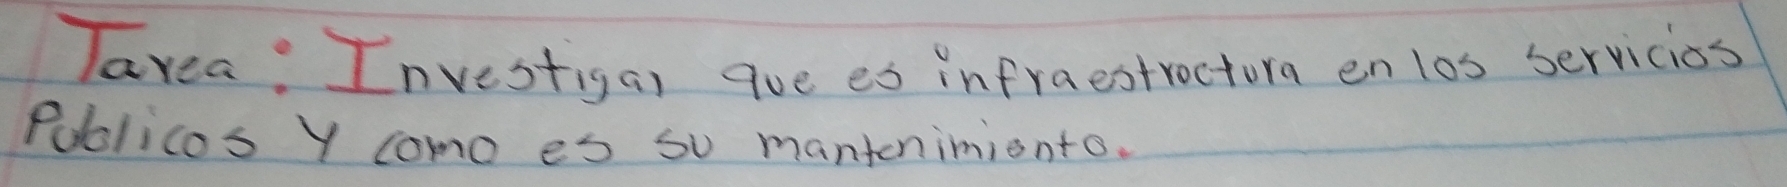 Tarea: Investigar que es infraestroctura en los servicios
Poblicos y como es su mantenimiento.